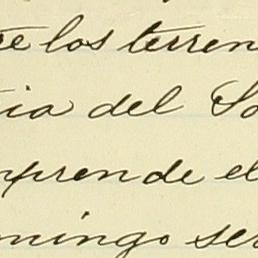 los terren
cia del So
mprende el
omingo ser